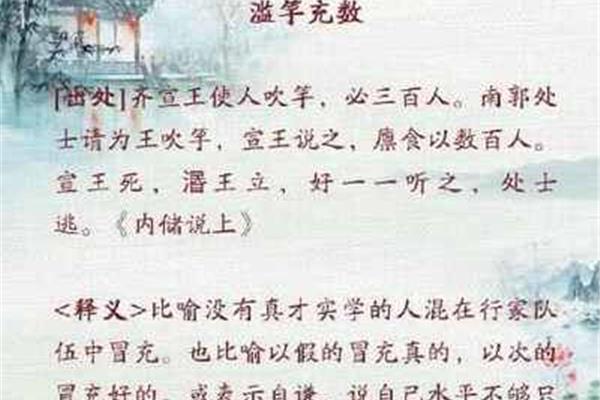 滥竽充数
[出处]齐宣王使人吹竽，必三百人。南郭处
士请为王吹竽，宣王说之，廪食以数百人。
宣王死，湣王立，好一一听之，处士
逃。《内储说上》
<释义>比喻没有真才实学的人混在行家队
伍中冒充。也比喻以假的冒充真的，以次的
冒充好的。或表示自谦，说自己水平不够只